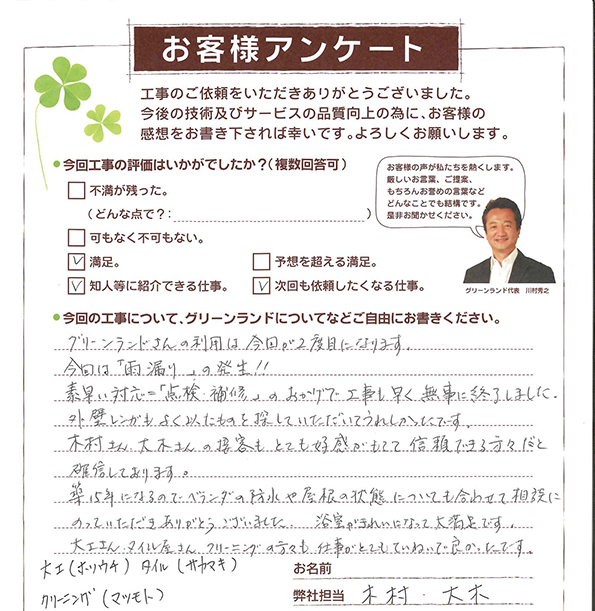 お客様アンケート
工事のご依頼をいただきありがとうございました。
今後の技術及びサービスの品質向上の為に、お客様の
感想をお書き下されば幸いです。よろしくお願いします。
●今回工事の評価はいかがでしたか？（複数回答可）
不満が残った。
（どんな点で？：　　　）
可もなく不可もない。
満足。　予想を超える満足。
知人等に紹介できる仕事。　次回も依頼したくなる仕事。
お客様の声が私たちを熱くします。
厳しいお言葉、ご提案、
もちろんお誉めの言葉など
どんなことでも結構です。
是非お聞かせください。
グリーンランド代表　川村秀之
●今回の工事について、グリーンランドについてなどご自由にお書きください。
グリーンランドさんの利用は今回が2度目になります。
今回は「雨漏り」の発生!!
素早い対応＝「点検・補修」のおかげで工事も早く無事に終了しました。
外壁レンガもよく似たものを探していただいてうれしかったです。
木村さん、大木さんの接客もとても好感がもてて信頼できる方々だと
確信しております。
築15年になるのでベランダの防水や屋根の状態についても合わせて相談に
のっていただきありがとうございました。　浴室がきれいになって大満足です。
大工さん、タイル屋さん、クリーニングの方々も仕事がとてもていねいで良かったです。
大工（ホリウチ）タイル（サカマキ）
クリーニング（マツモト）
お名前
弊社担当　木村・大木